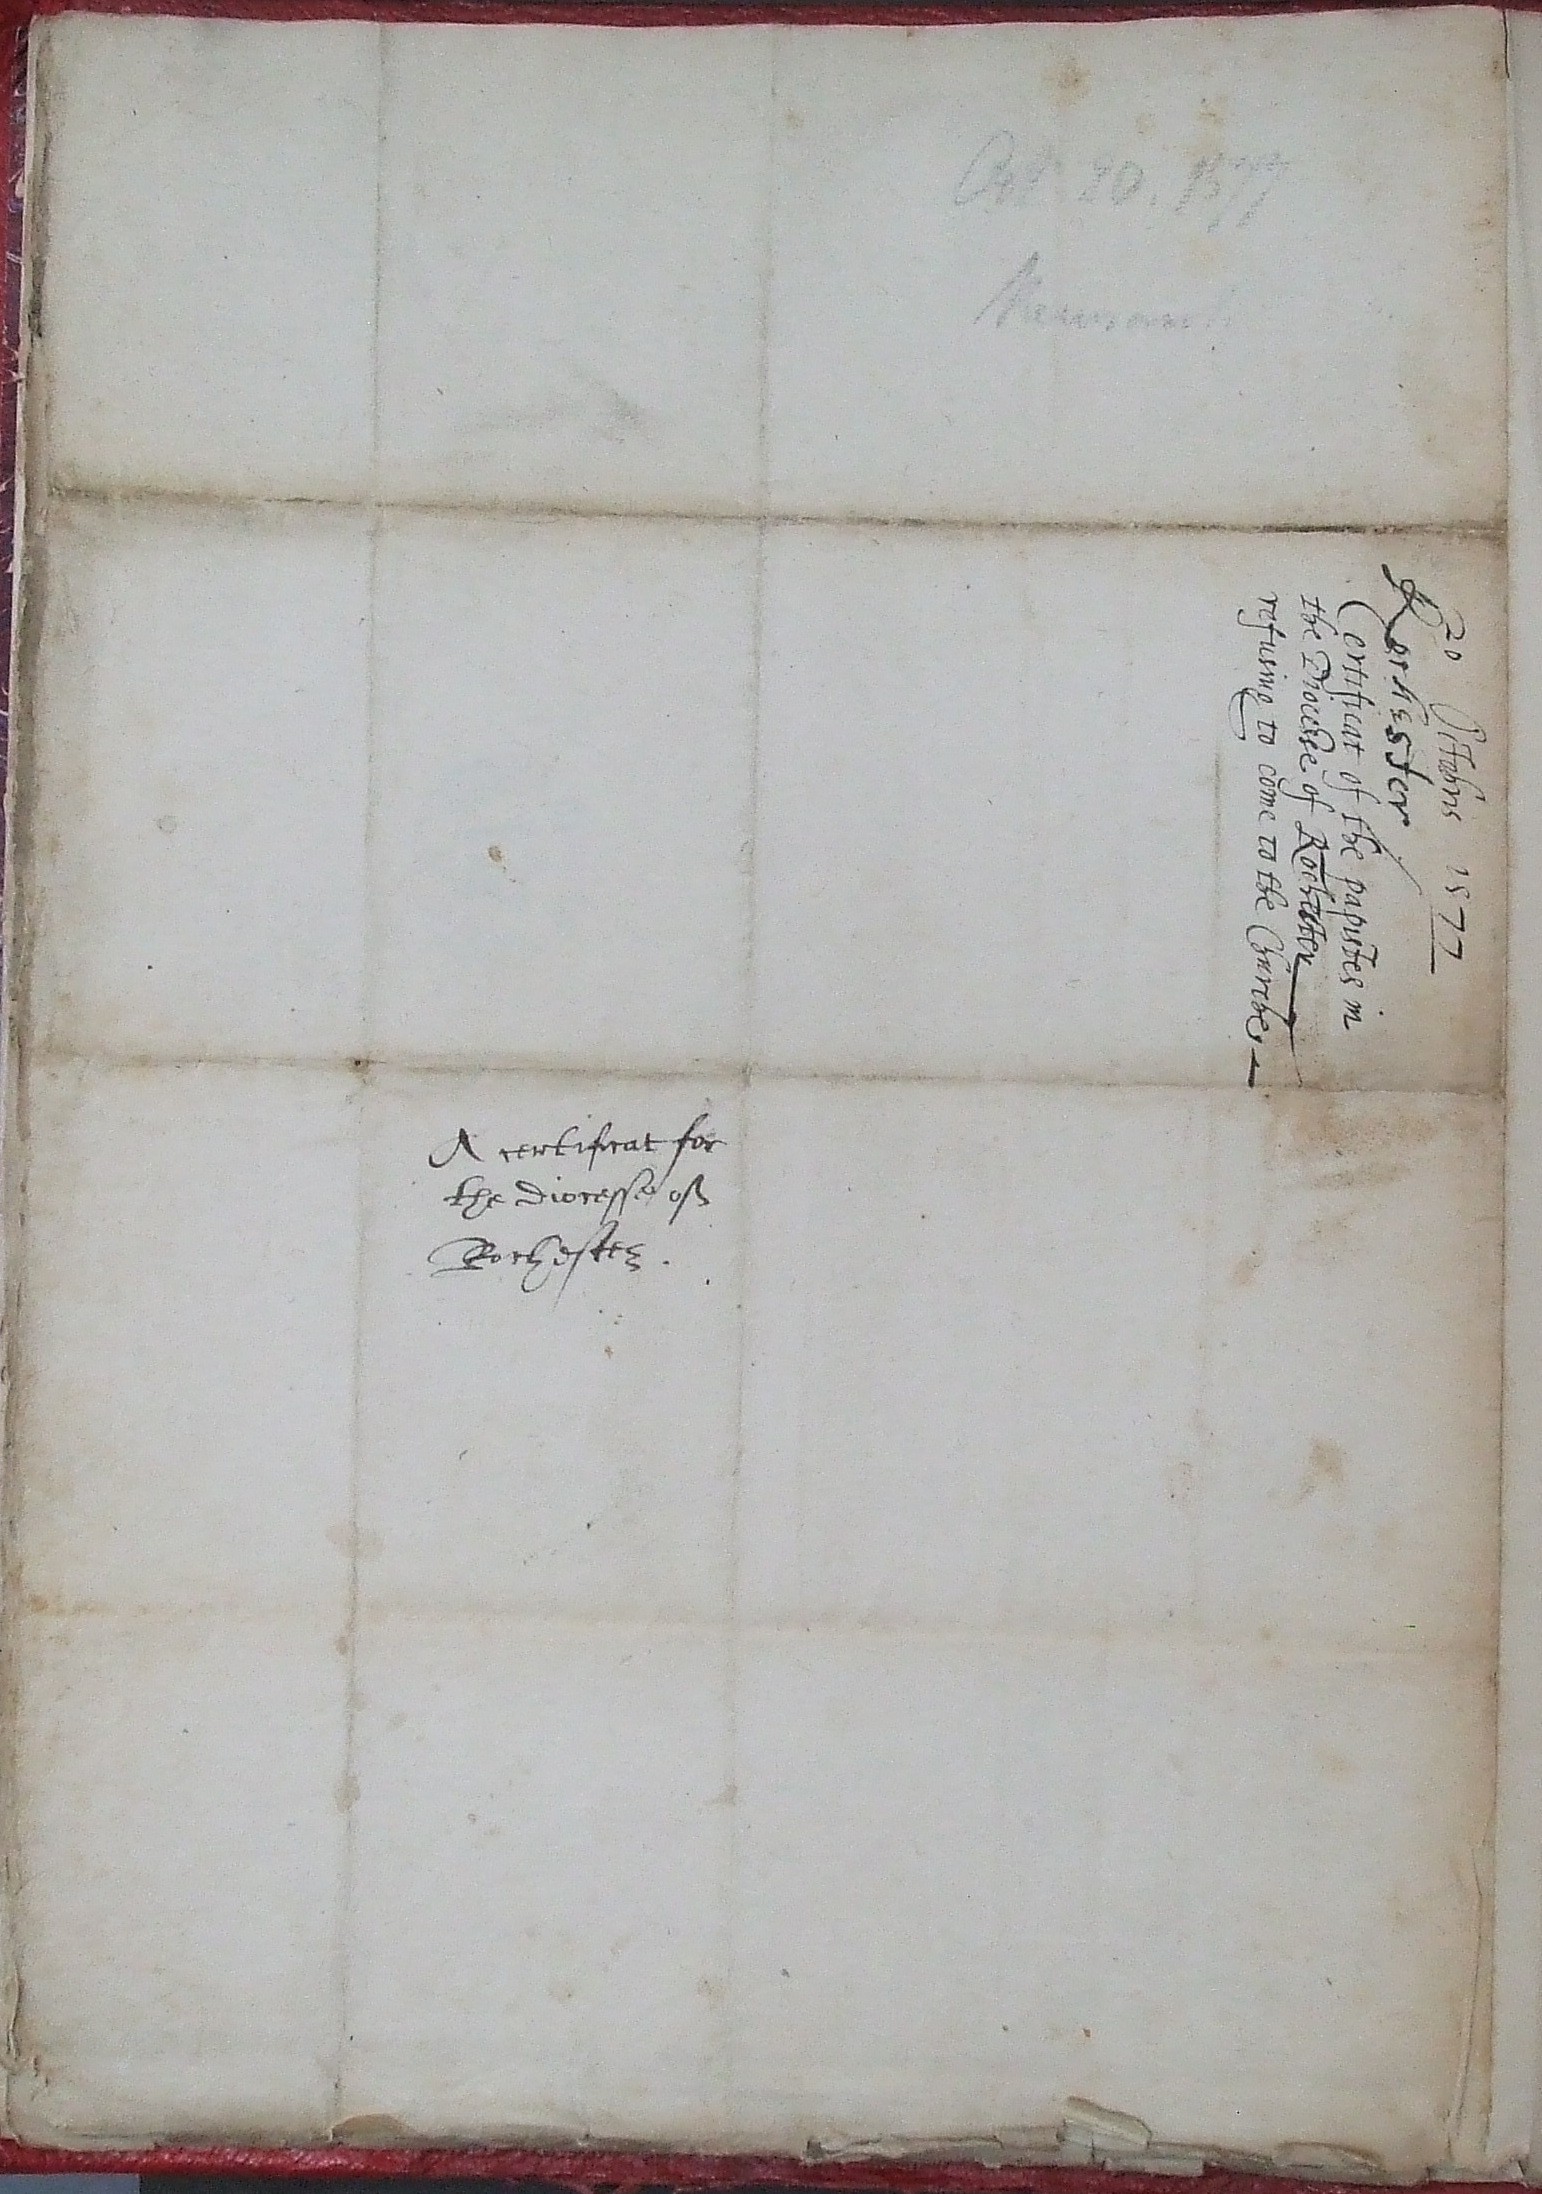 Oct. 20. 1577
20 Octobris 1577
Rochester
Certificat of the papistes in
the Diocesse of Rochester
refusing to come to the Churches
A certificat for
the diocesse off
Rochester.